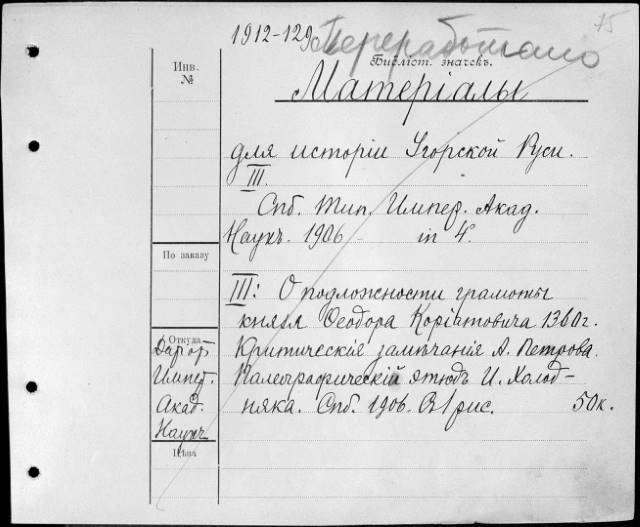 75
1912-129
Переработано
Инв.
№
Библіот. значекъ.
Матеріалы
для исторіи Угорской Руси.
III.
Спб. Тип. Импер. Акад.
Наукъ. 1906 in 4°.
По заказу
III: О подложности грамоты
князя Ѳеодора Коріатовича 1360 г.
Откуда
Дар от Критическія замѣчанія А. Петрова.
Импет. Палеографическій этюдъ И. Холод-
Акад. няка. Спб. 1906. Съ 1 рис. 50 к.
Наукъ
Цѣна